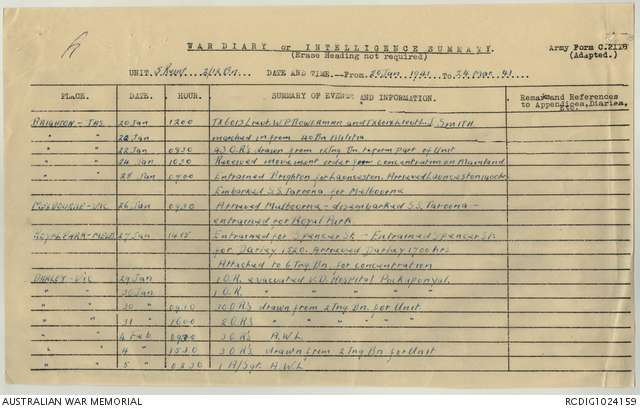 WAR DIARY or INTELLIGENCE SUMMARY.
(Erase Heading not required)
Army Form C.2118
(Adapted.)
UNIT 2/12 Bn. DATE AND TIME—From 20 Jan 1941 to 24 Mar 41
PLACE. DATE. HOUR. SUMMARY OF EVENTS AND INFORMATION. Remarks and References to Appendices, Diaries, Etc.
BRIGHTON-TAS 20 Jan 1200 TX6013 Lieut. W.P. BOWERMAN and Lieut. SMITH
" 22 Jan marched in from 40 Bn Militia
" " 22 Jan 0930 43 O.R's drawn from 12 Tng Bn to form part of Unit
" " 24 Jan 1030 Received movement order for concentration on Mainland
" " 25 Jan 0900 Entrained Brighton for Launceston. Arrived Launceston
Embarked S.S. Taroona for Melbourne
MELBOURNE-VIC 26 Jan 0930 Arrived Melbourne - disembarked S.S. Taroona -
entrained for Royal Park
ROYAL PARK-MELB 27 Jan Entrained for Spencer St - Entrained Spencer St.
for Darley 1520. Arrived Darley 1700 hrs
Attached to 6 Tng Bn for concentration
DARLEY-VIC 29 Jan 1 O.R. evacuated V.D. Hospital Puckapunyal.
" " 30 Jan 1 O.R. " " " "
" " 30 " 0910 10 O.R's drawn from 2 Tng Bn. for Unit.
" " 31 " 1600 2 O.R's " " " " "
" " 4 Feb 0930 3 O.R's A.W.L.
" " 4 " 1530 3 O.R's drawn from 2 Tng Bn for Unit
" " 5 " 0230 1 A/Sgt. A.W.L
AUSTRALIAN WAR MEMORIAL
RCDIG1024159